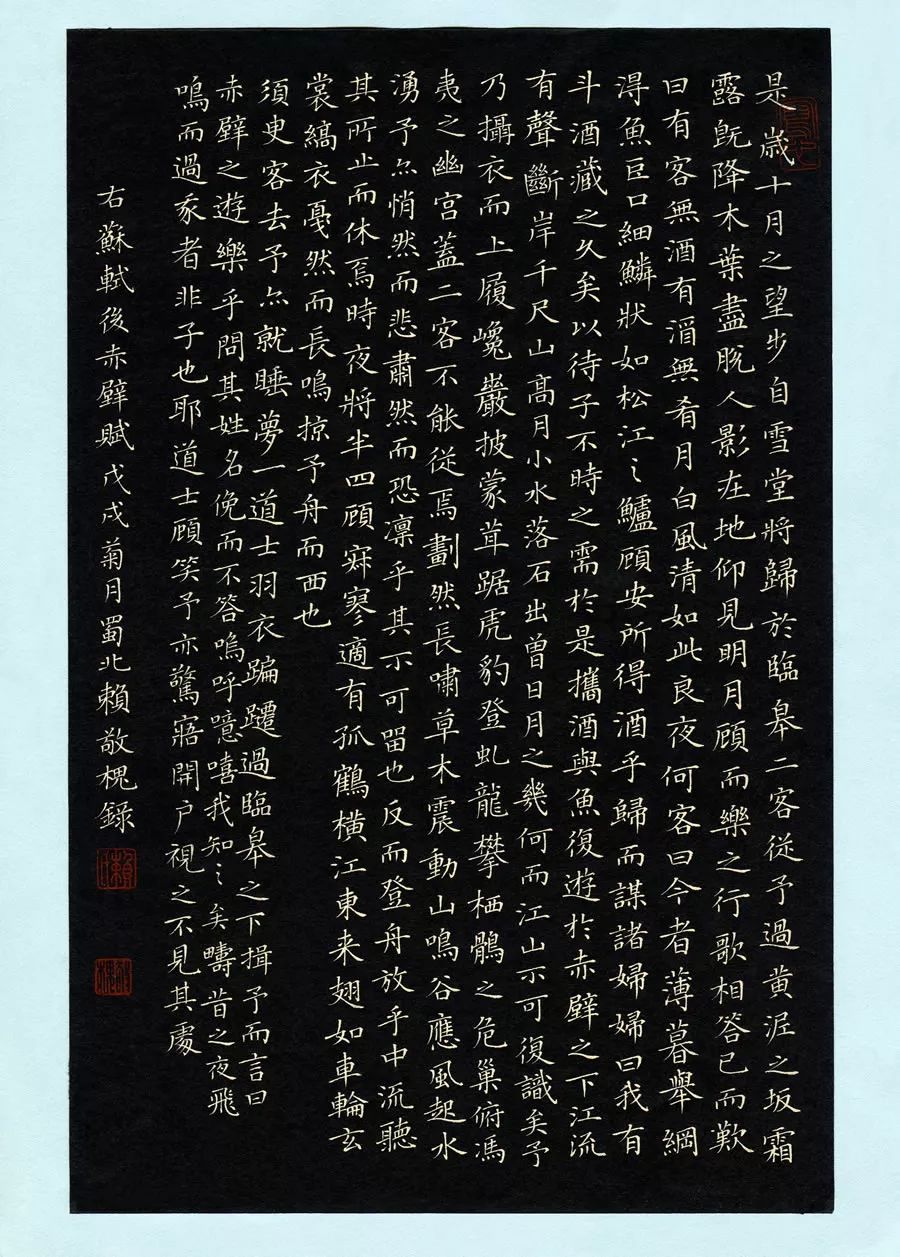 是歲十月之望步自雪堂將歸於臨皋二客從予過黄泥之坂霜
露既降木葉盡脱人影在地仰見明月顧而樂之行歌相答已而歎
曰有客無酒有酒無肴月白風清如此良夜何客曰今者薄暮舉網
得魚巨口細鱗狀如松江之鱸顧安所得酒乎歸而謀諸婦婦曰我有
斗酒藏之久矣以待子不時之需於是攜酒與魚復遊於赤壁之下江流
有聲斷岸千尺山高月小水落石出曾日月之幾何而江山不可復識矣予
乃攝衣而上履巉巖披蒙茸踞虎豹登虬龍攀栖鶻之危巢俯馮
夷之幽宫蓋二客不能從焉劃然長嘯草木震動山鳴谷應風起水
湧予亦悄然而悲肅然而恐凛乎其不可留也反而登舟放乎中流聽
其所止而休焉時夜將半四顧寂寥適有孤鶴橫江東来翅如車輪玄
裳縞衣戛然而長鳴掠予舟而西也
須臾客去予亦就睡夢一道士羽衣蹁躚過臨皋之下揖予而言曰
赤壁之遊樂乎問其姓名俛而不答嗚呼噫嘻我知之矣疇昔之夜飛
鳴而過我者非子也耶道士顧笑予亦驚寤開户視之不見其處
右蘇軾後赤壁賦戊戌菊月蜀北賴敬槐錄